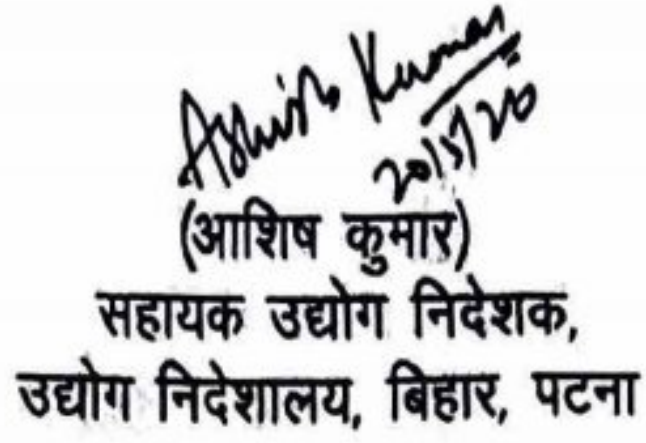 Ashish Kumar
20/5/20
(आशिष कुमार)
सहायक उद्योग निदेशक,
उद्योग निदेशालय, बिहार, पटना